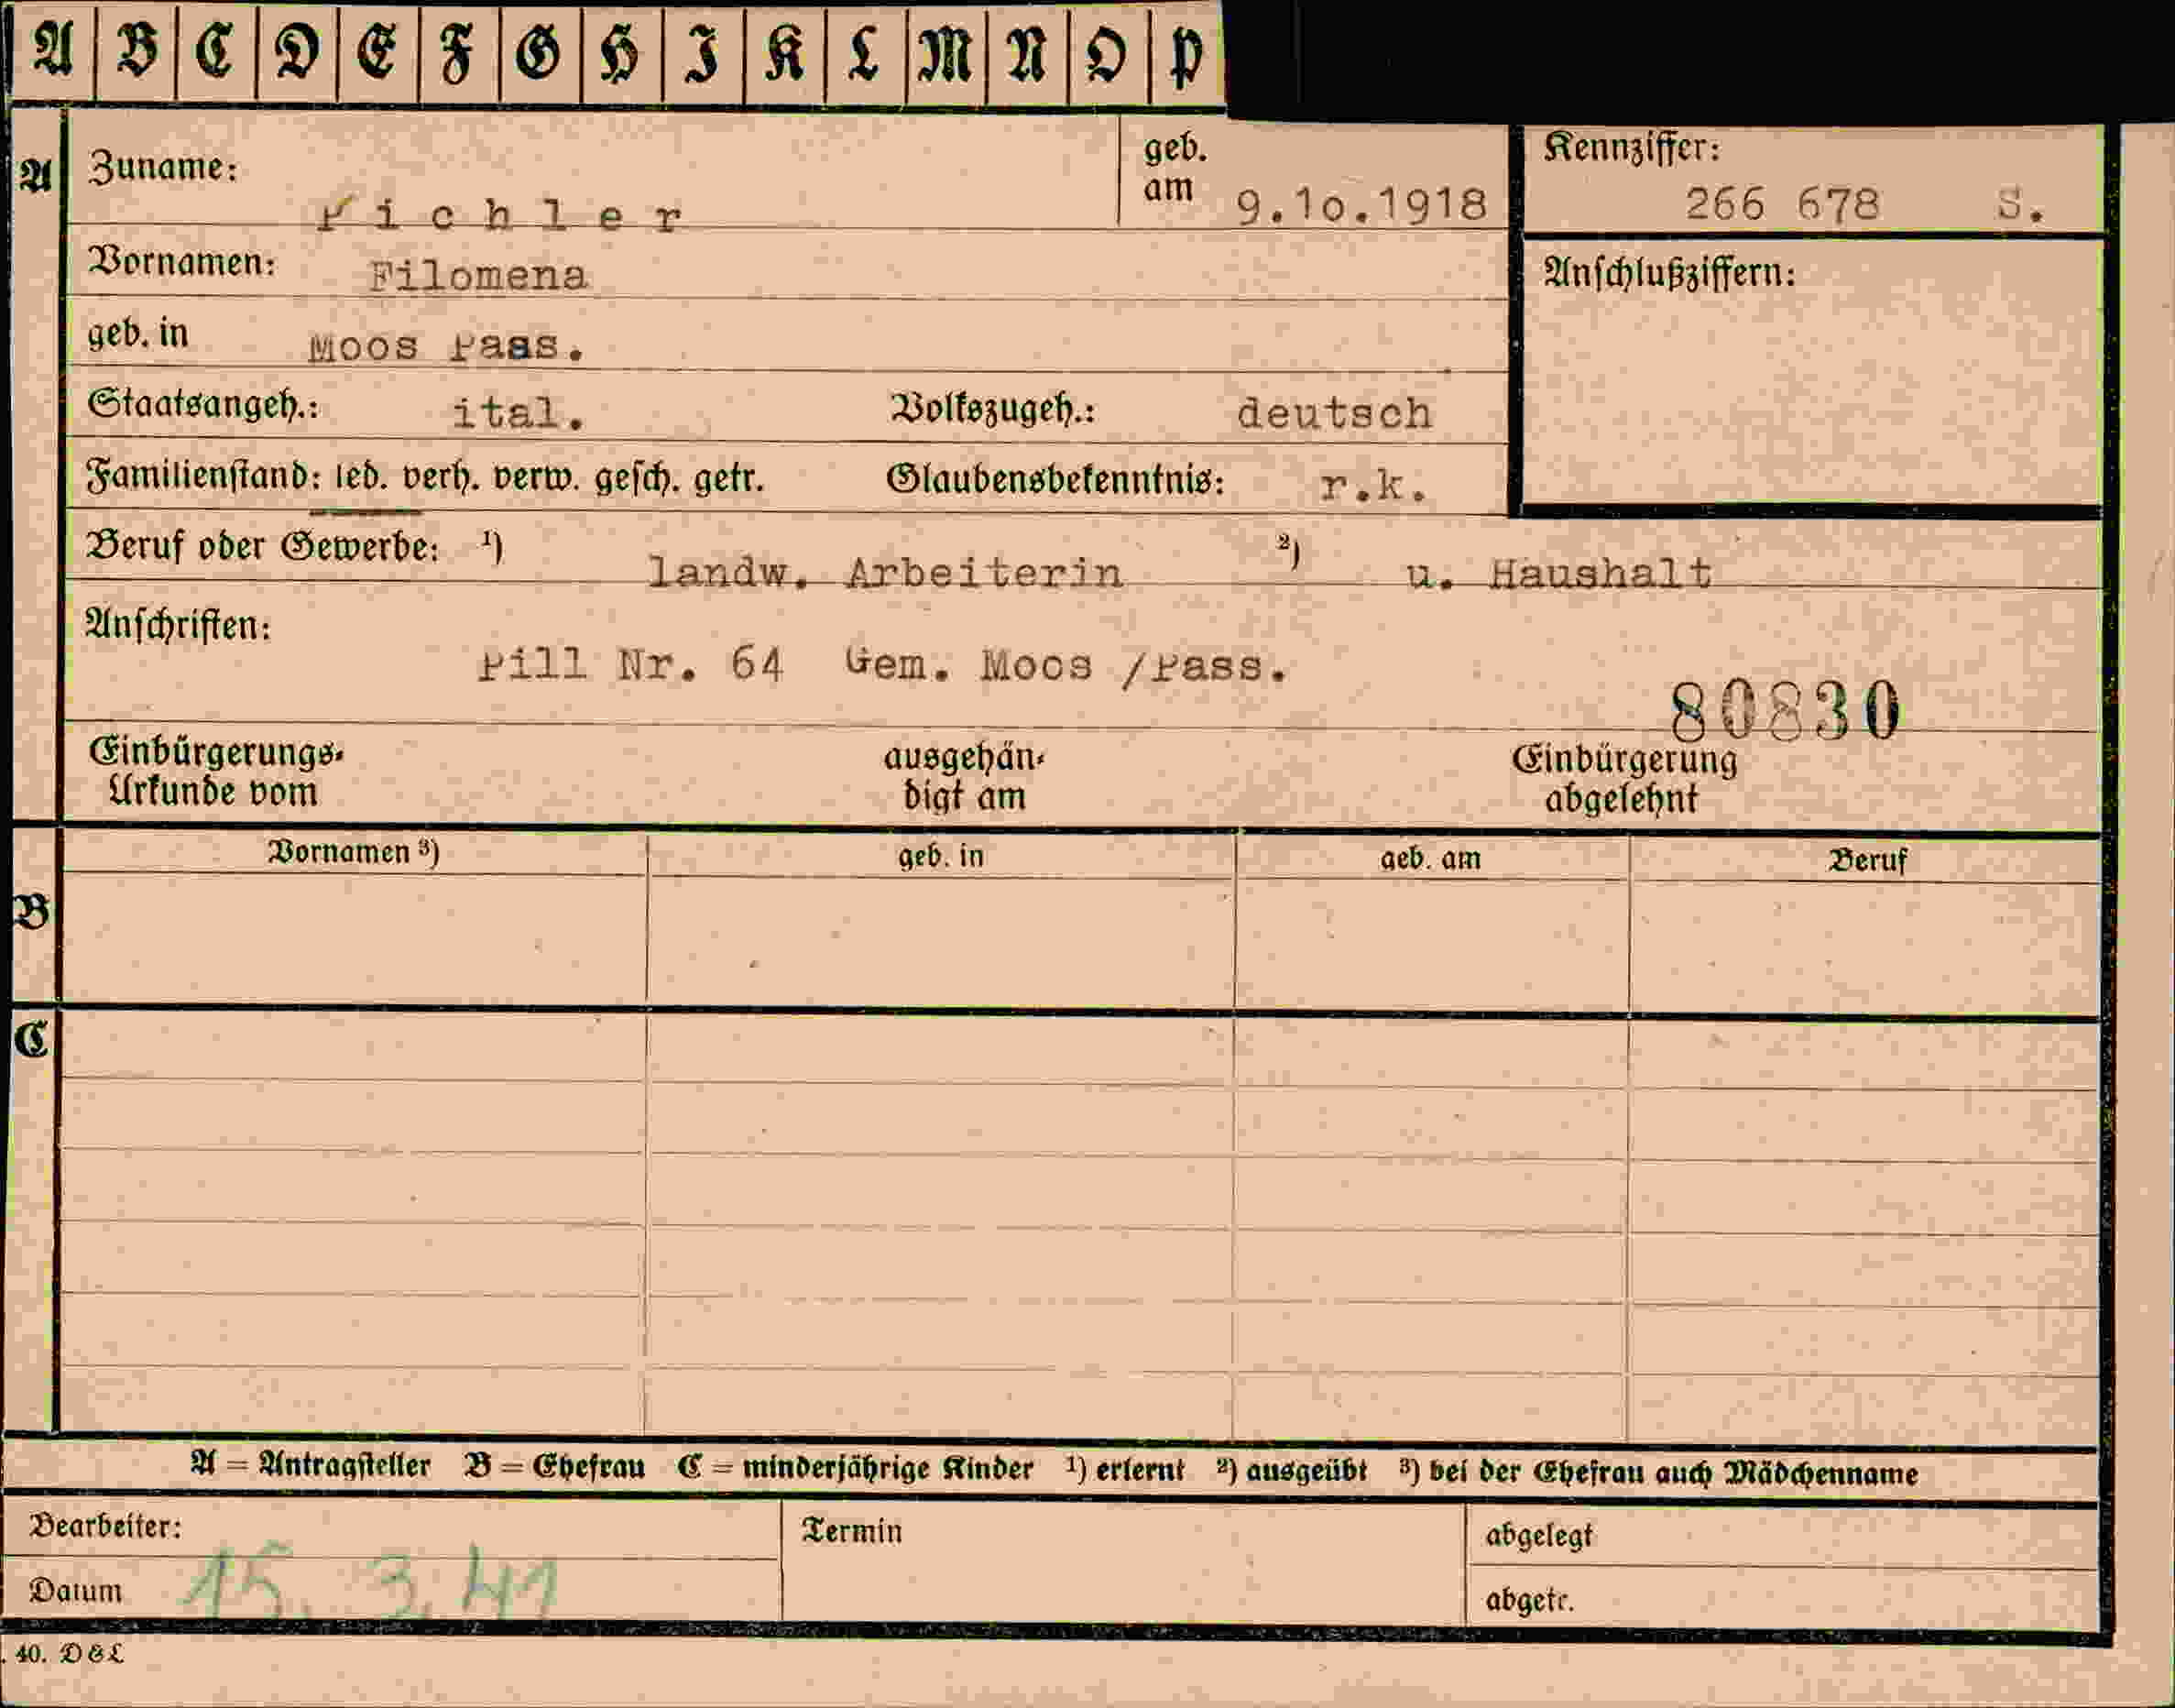 A B C D E F G H I K L M N O P
A Zuname: Pichler geb. am 9.10.1918 Kennziffer: 266 678 S.
Vornamen: Filomena Anschlußziffern:
geb. in Moos Pass.
Staatsangeh.: ital. Volkszugeh.: deutsch
Familienstand: led. verh. verw. gesch. getr. Glaubensbekenntnis: r.k.
Beruf oder Gewerbe: ¹) landw. Arbeiterin ²) u. Haushalt
Anschriften:
Pill Nr. 64 Gem. Moos /Pass.
80830
Einbürgerungs- ausgehän- Einbürgerung
Urkunde vom digt am abgelehnt
Vornamen ³) geb. in geb. am Beruf
B
C
A = Antragsteller B = Ehefrau C = minderjährige Kinder ¹) erlernt ²) ausgeübt ³) bei der Ehefrau auch Mädchenname
Bearbeiter: Termin abgelegt
Datum 15. 3. 41 abgetr.
. 40. D & L